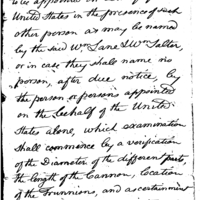 to be appointed on behalf of the
United States in the presence of such
other person as may be named
by the said Wm Lane & Wm Salter,
or in case they shall name no
person, after due notice, by
the person or persons appointed
on the behalf of the United
States alone, which examination
shall commence by a verification
of the Diameter of the different parts,
the length of the Cannon, Location
of the Trunnions, and ascertainment